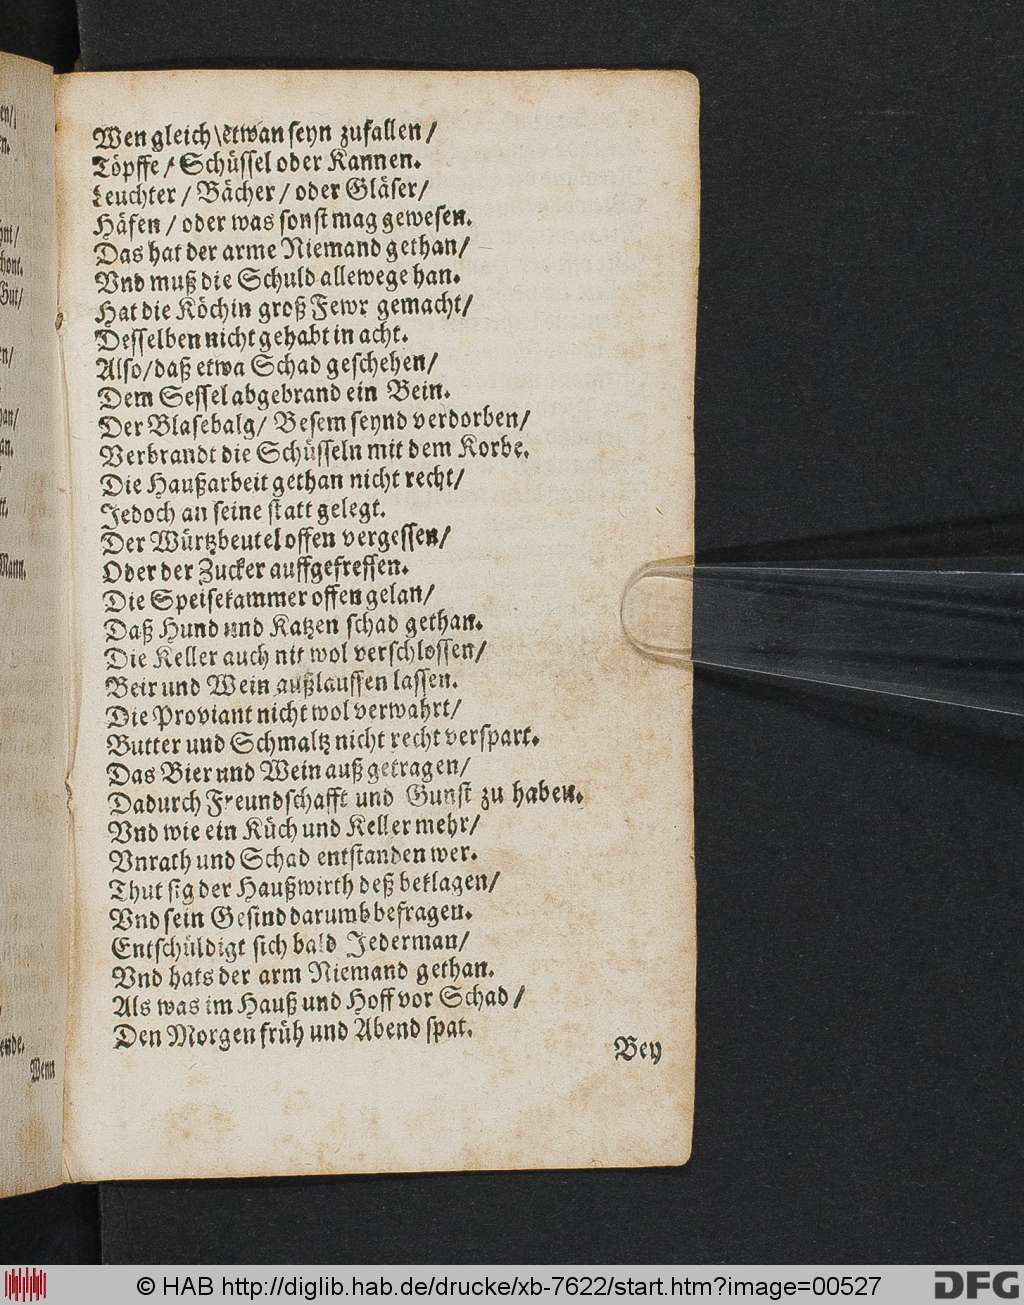 Wen gleich etwan seyn zufallen/
Töpffe/ Schüssel oder Kannen.
Leuchter/ Bächer/ oder Gläser/
Häfen/ oder was sonst mag gewesen.
Das hat der arme Niemand gethan/
Vnd muß die Schuld allewege han.
Hat die Köchin groß Fewr gemacht/
Desselben nicht gehabt in acht.
Also/ daß etwa Schad geschehen/
Dem Sessel abgebrand ein Bein.
Der Blasebalg/ Besem seynd verdorben/
Verbrandt die Schüsseln mit dem Korbe.
Die Haußarbeit gethan nicht recht/
Jedoch an seine statt gelegt.
Der Würtzbeutel offen vergessen/
Oder der Zucker auffgefressen.
Die Speisekammer offen gelan/
Daß Hund und Katzen schad gethan.
Die Keller auch nit wol verschlossen/
Beir und Wein außlauffen lassen.
Die Proviant nicht wol verwahrt/
Butter und Schmaltz nicht recht verspart.
Das Bier und Wein auß getragen/
Dadurch Freundschafft und Gunst zu haben.
Vnd wie ein Küch und Keller mehr/
Vnrath und Schad entstanden wer.
Thut sig der Haußwirth deß beklagen/
Vnd sein Gesind darumb befragen.
Entschüldigt sich bald Jederman/
Vnd hats der arm Niemand gethan.
Als was im Hauß und Hoff vor Schad/
Den Morgen früh und Abend spat.
Bey
Wenn
© HAB http://diglib.hab.de/drucke/xb-7622/start.htm?image=00527
DFG